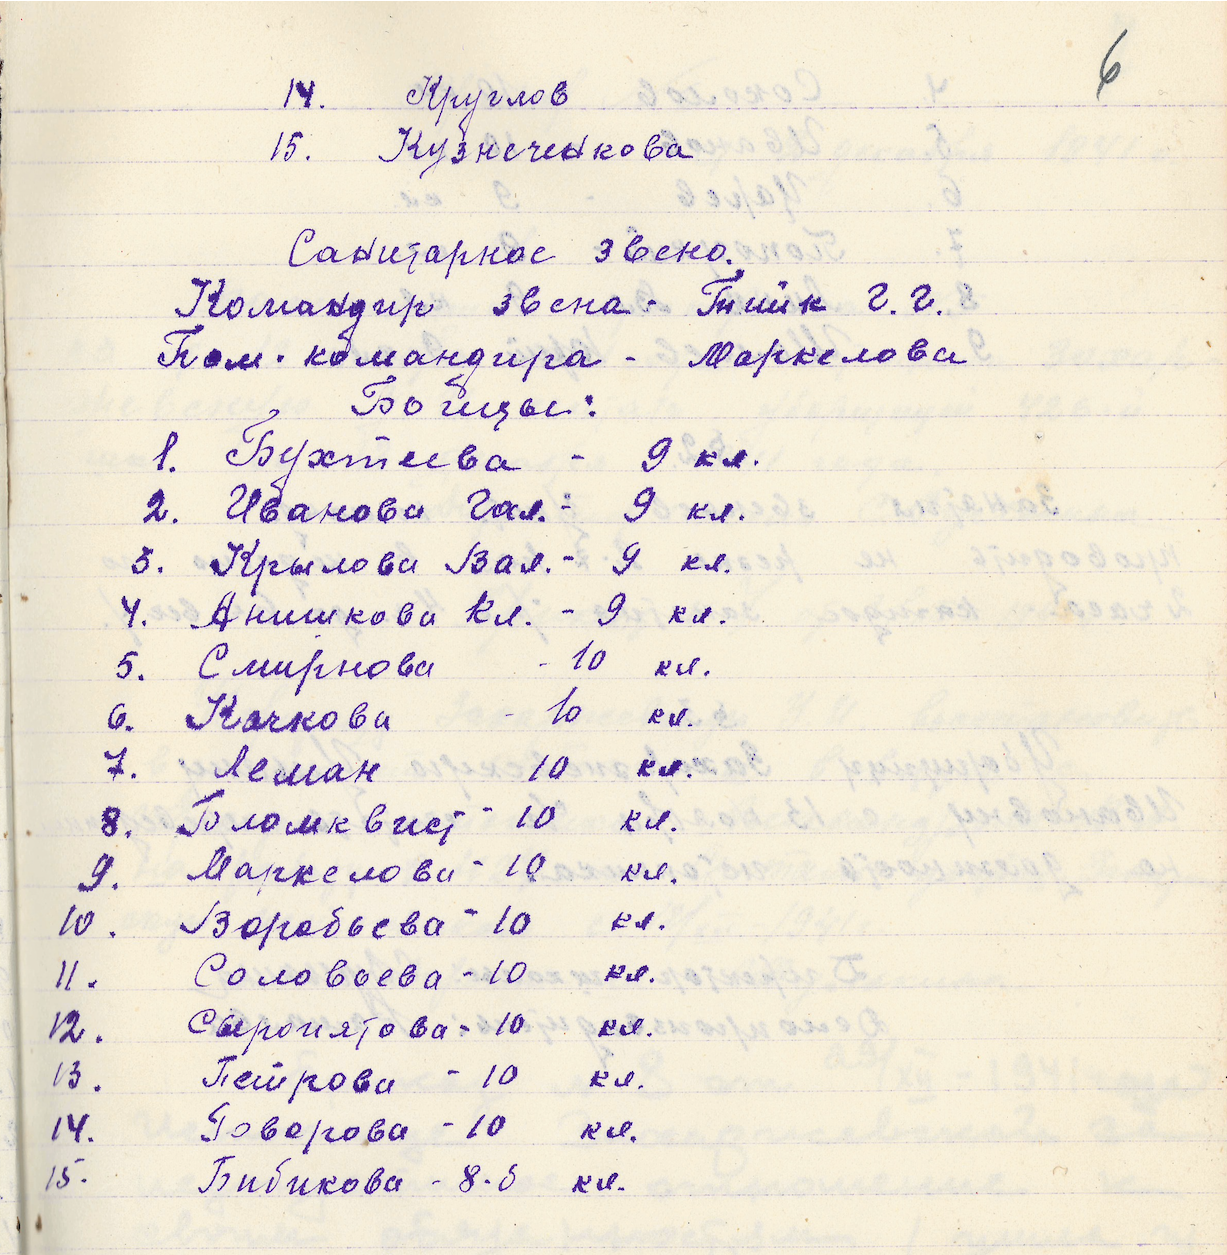 6
14. Круглов
15. Кузнеченкова
Санитарное звено.
Командир звена - Тийк Г. Г.
Пом. командира - Маркелова
Бойцы:
1. Бухтеева - 9 кл.
2. Иванова Гал. - 9 кл.
3. Крылова Вал. - 9 кл.
4. Анишкова Кл. - 9 кл.
5. Смирнова - 10 кл.
6. Качкова - 10 кл.
7. Леман - 10 кл.
8. Бломквист - 10 кл.
9. Маркелова - 10 кл.
10. Воробьева - 10 кл.
11. Соловьева - 10 кл.
12. Сыропятова - 10 кл.
13. Петрова - 10 кл.
14. Говорова - 10 кл.
15. Бибикова - 8-б кл.